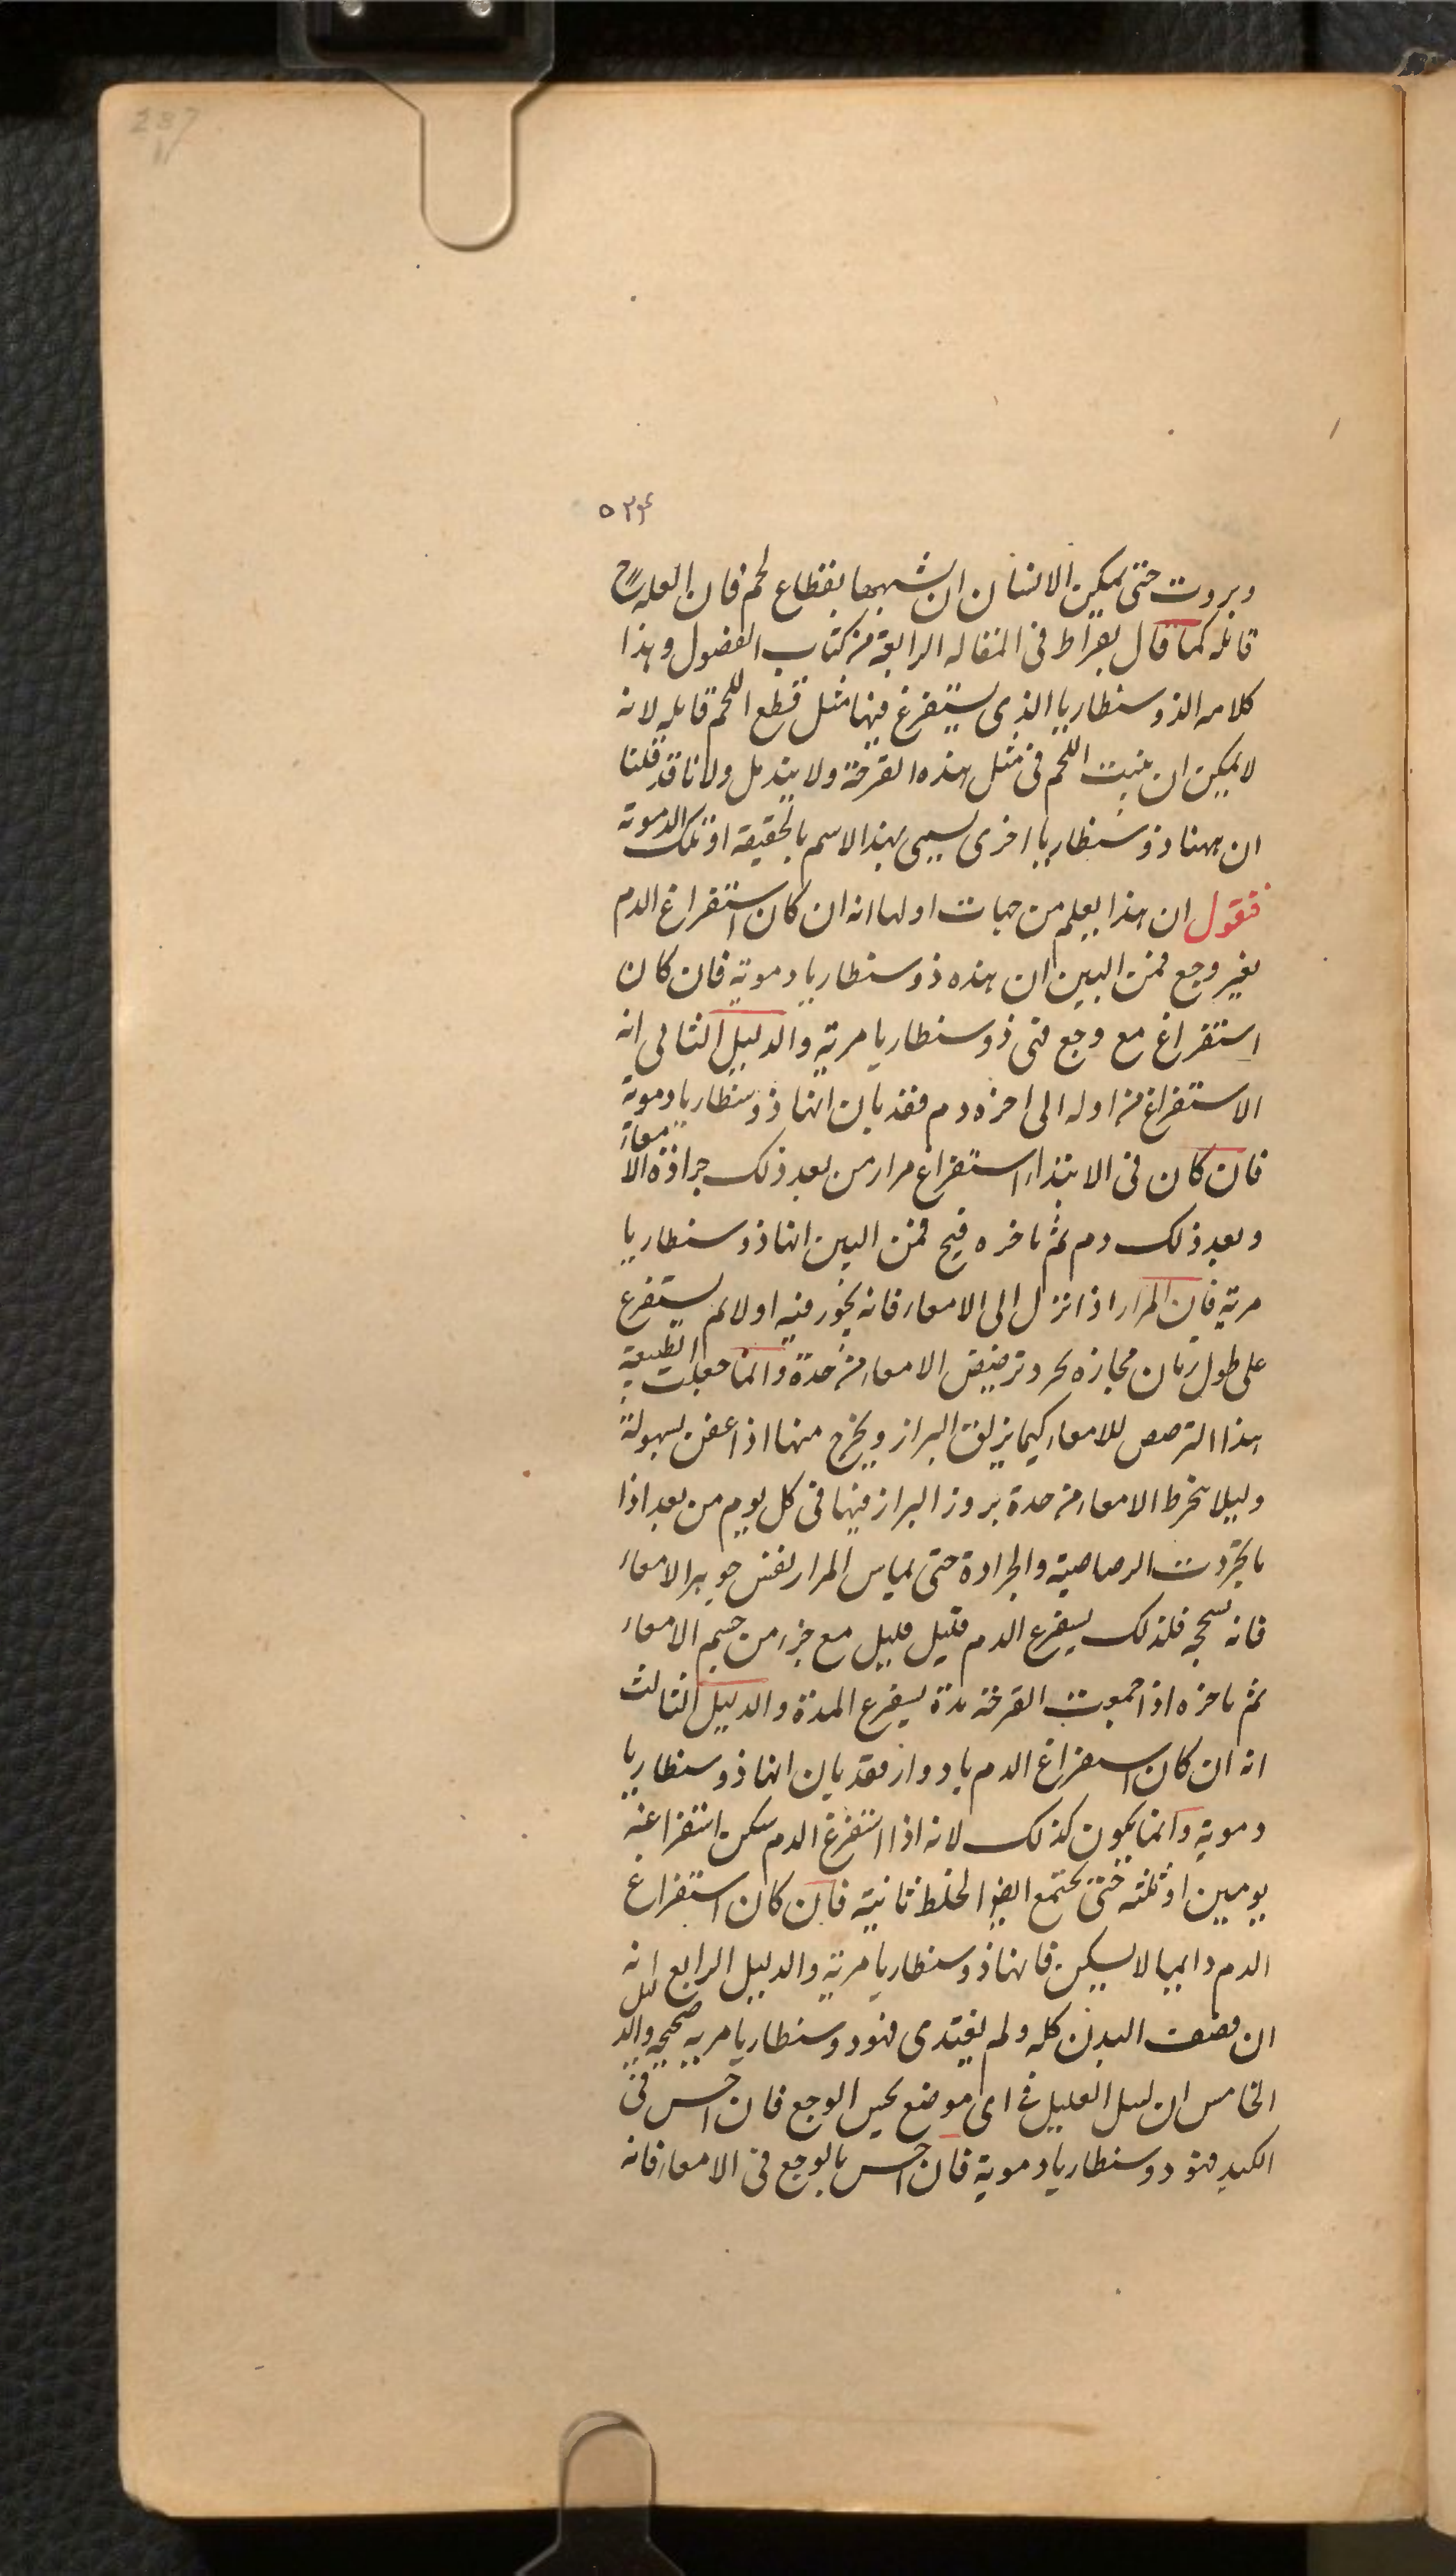 237
۵۳۴
وبروت حتى يمكن الانسان ان يشبهها بقطاع لحم فان العلة ح
قاتله كما قال بقراط فى المقاله الرابعة من كتاب الفصول وهذا
كلامه الذوسنطاريا الذى يستفرغ فيها مثل قطع اللحم قاتله لانه
لا يمكن ان ينبت اللحم فى مثل هذه القرحة ولا يندمل ولانا قد قلنا
ان ههنا ذوسنطاريا اخرى يسمى بهذا الاسم بالحقيقه او تلك الدموية
فنقول ان هذا يعلم من جهات اولها انه ان كان استفراغ الدم
بغير وجع فمن البين ان هذه ذوسنطاريا دموية فان كان
استفراغ مع وجع فهى ذوسنطاريا مرية والدليل الثانى انه
الاستفراغ من اوله الى اخره دم فقد بان انها ذوسنطاريا دموية
فان كان فى الابتداء استفراغ مرار من بعد ذلك جرادة الامعاء
وبعد ذلك دم ثم باخره قيح فمن البين انها ذوسنطاريا
مرية فان المرار اذا نزل الى الامعاء فانه يخور فيه اولا ثم يستفرغ
على طول زمان مجازه يجرد ترصيص الامعاء من حدة وانما جعلت الطبيعة
هذا الترصص للامعاء كيما يزلق البراز ويخرج منها اذا عفن بسهولة
وليلا ينخرط الامعاء من حدة بروز البراز فيها فى كل يوم من بعد اذا
ما تجردت الرصاصية والجرادة حتى يماس المرار نفس جوهر الامعاء
فانه يسحجه فلذلك يستفرغ الدم قليل قليل مع جزء من جسم الامعاء
ثم باخره اذا جمعت القرحة مدة يستفرغ المدة والدليل الثالث
انه ان كان استفراغ الدم بادوار فقد بان انها ذوسنطاريا
دموية وانما يكون كذلك لانه اذا استفرغ الدم سكن استفراغه
يومين او ثلثه حتى يجتمع ايضا الخلط ثانية فان كان استفراغ
الدم دايما لا يسكن فانها ذوسنطاريا مرية والدليل الرابع انه
ان ضعف البدن كله ولم يغتدى فهو ذوسنطاريا مريه صحيحه والدليل
الخامس ان يسل العليل فى اى موضع يحس الوجع فان احس فى
الكبد فهو ذوسنطاريا دموية فان احس بالوجع فى الامعاء فانه